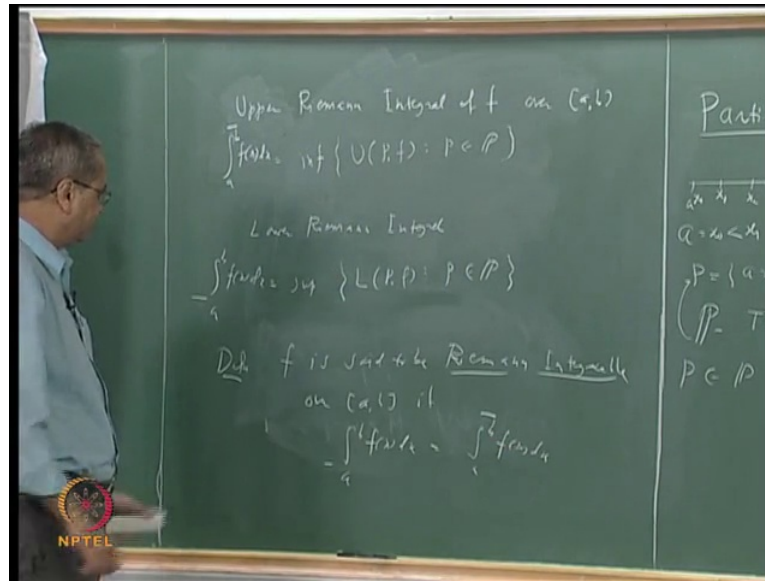 Upper Riemann Integral of f over [a,b]
∫̅ₐᵇ f(x)dx = inf { U(P,f) : P ∈ ℙ }
Lower Riemann Integral
∫̲ₐᵇ f(x)dx = sup { L(P,f) : P ∈ ℙ }
Defn f is said to be Riemann Integrable
on [a,b] if
∫̲ₐᵇ f(x)dx = ∫̅ₐᵇ f(x)dx
Parti
a x₀ x₁ x₂
a = x₀ < x₁
P = { a =
ℙ - T
P ∈ ℙ
NPTEL